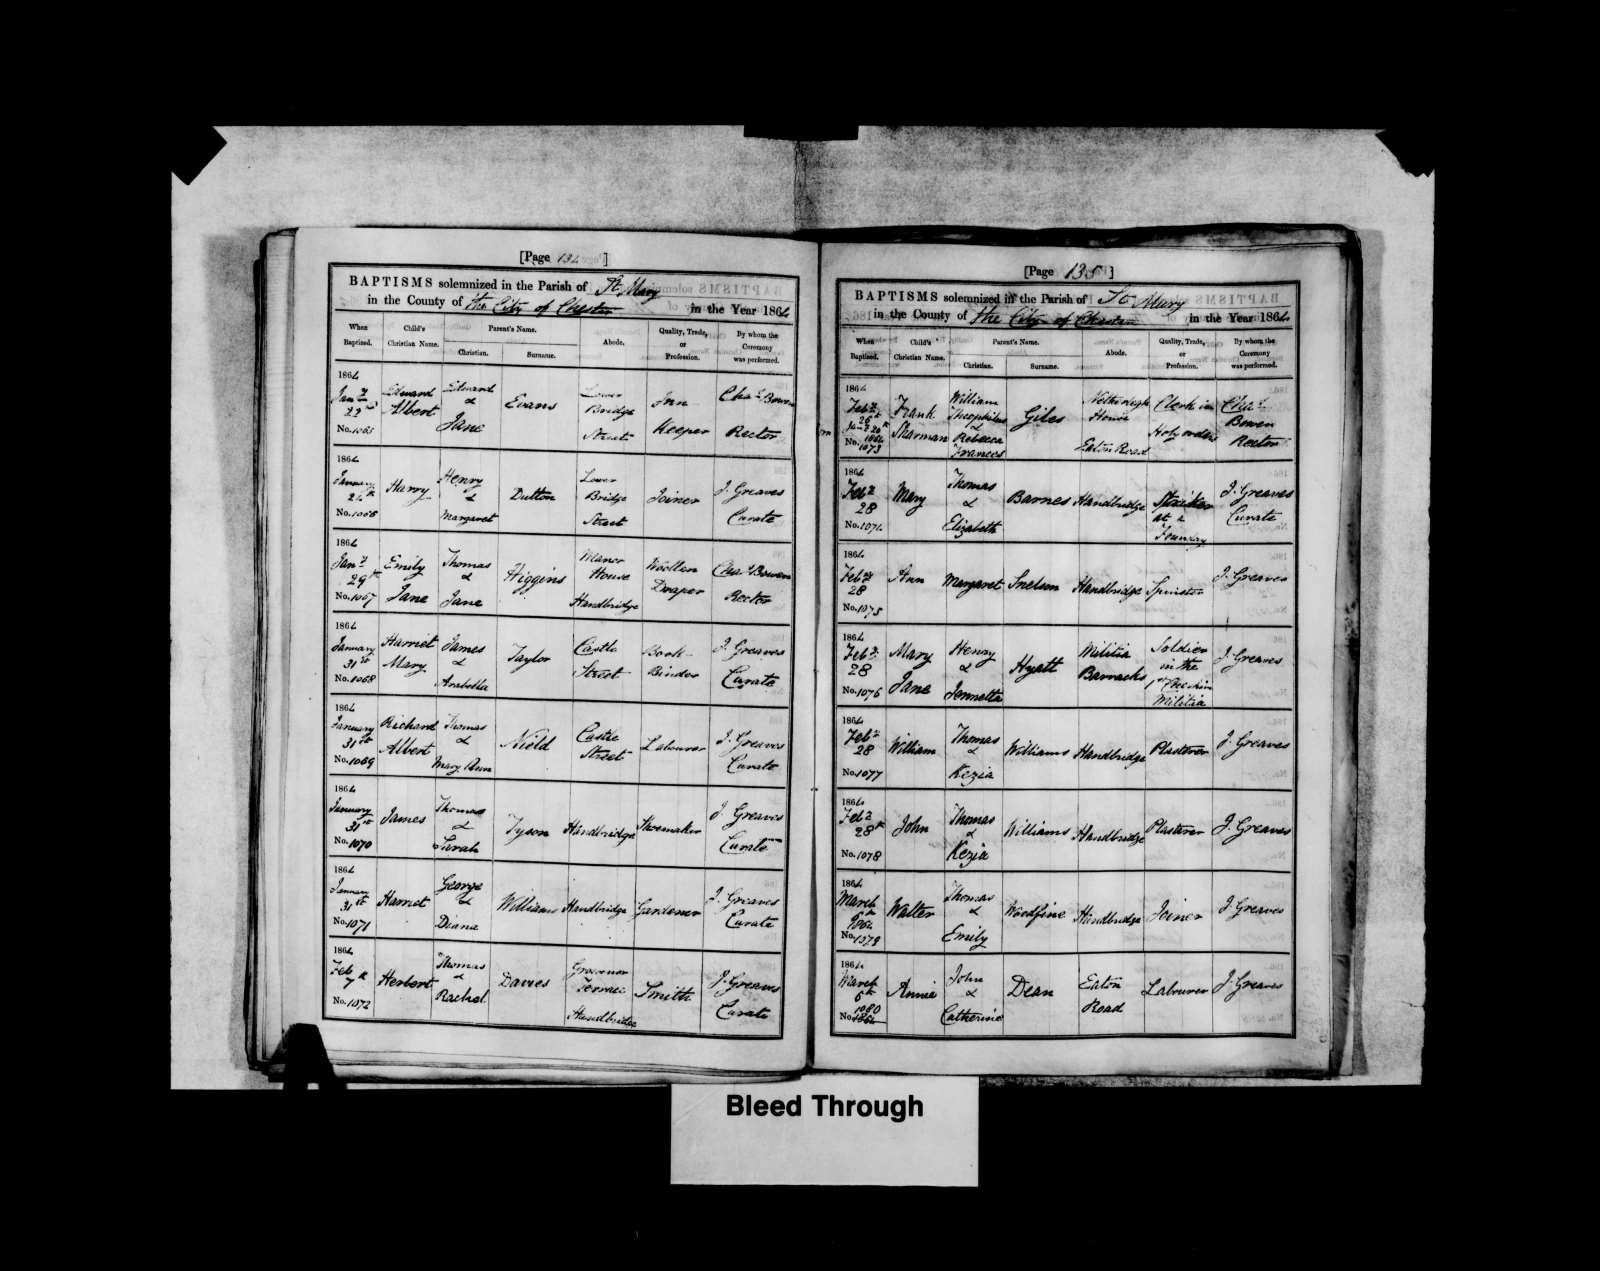 [Page 134]
BAPTISMS solemnized in the Parish of St. Mary
in the County of the City of Chester in the Year 1864
When Baptized. Child's Christian Name. Parent's Name. Christian. Surname. Abode. Quality, Trade, or Profession. By whom the Ceremony was performed.
1864 Jany 22nd No. 1065 Edward Albert Edward & Jane Evans Lower Bridge Street Inn Keeper Chas Bowen Rector
1864 January 24th No. 1066 Harry Henry & Margaret Dutton Lower Bridge Street Joiner J. Greaves Curate
1864 Jany 29th No. 1067 Emily Jane Thomas & Jane Higgins Manor House Handbridge Woollen Draper Chas Bowen Rector
1864 January 31st No. 1068 Harriet Mary James & Arabella Taylor Castle Street Book Binder J. Greaves Curate
1864 January 31st No. 1069 Richard Albert Thomas & Mary Ann Nield Castle Street Labourer J. Greaves Curate
1864 January 31st No. 1070 James Thomas & Sarah Tyson Handbridge Shoemaker J. Greaves Curate
1864 January 31st No. 1071 Harriet George & Diana Williams Handbridge Gardener J. Greaves Curate
1864 Feb 7th No. 1072 Herbert Thomas & Rachel Davies Grosvenor Terrace Handbridge Smith J. Greaves Curate
[Page 135]
BAPTISMS solemnized in the Parish of St. Mary
in the County of the City of Chester in the Year 1864
When Baptized. Child's Christian Name. Parent's Name. Christian. Surname. Abode. Quality, Trade, or Profession. By whom the Ceremony was performed.
1864 Feby 26th No. 1073 Frank Sharman William Theophilus & Rebecca Frances Giles Netherleigh House Eaton Road Clerk in Holy orders Chas Bowen Rector
1864 Feby 28 No. 1074 Mary Thomas & Elizabeth Barnes Handbridge Striker at a Foundry J. Greaves Curate
1864 Feby 28 No. 1075 Ann Margaret Snelson Handbridge Spinster J. Greaves
1864 Feby 28 No. 1076 Mary Jane Henry & Jennetta Hyatt Militia Barracks Soldier in the 1st Cheshire Militia J. Greaves
1864 Feby 28 No. 1077 William Thomas & Kezia Williams Handbridge Plasterer J. Greaves
1864 Feby 28th No. 1078 John Thomas & Kezia Williams Handbridge Plasterer J. Greaves
1864 March 6th 1864 No. 1079 Walter Thomas & Emily Woodfine Handbridge Joiner J. Greaves
1864 March 6th 1080 No. 1864 Annie John & Catherine Dean Eaton Road Labourer J. Greaves
Bleed Through